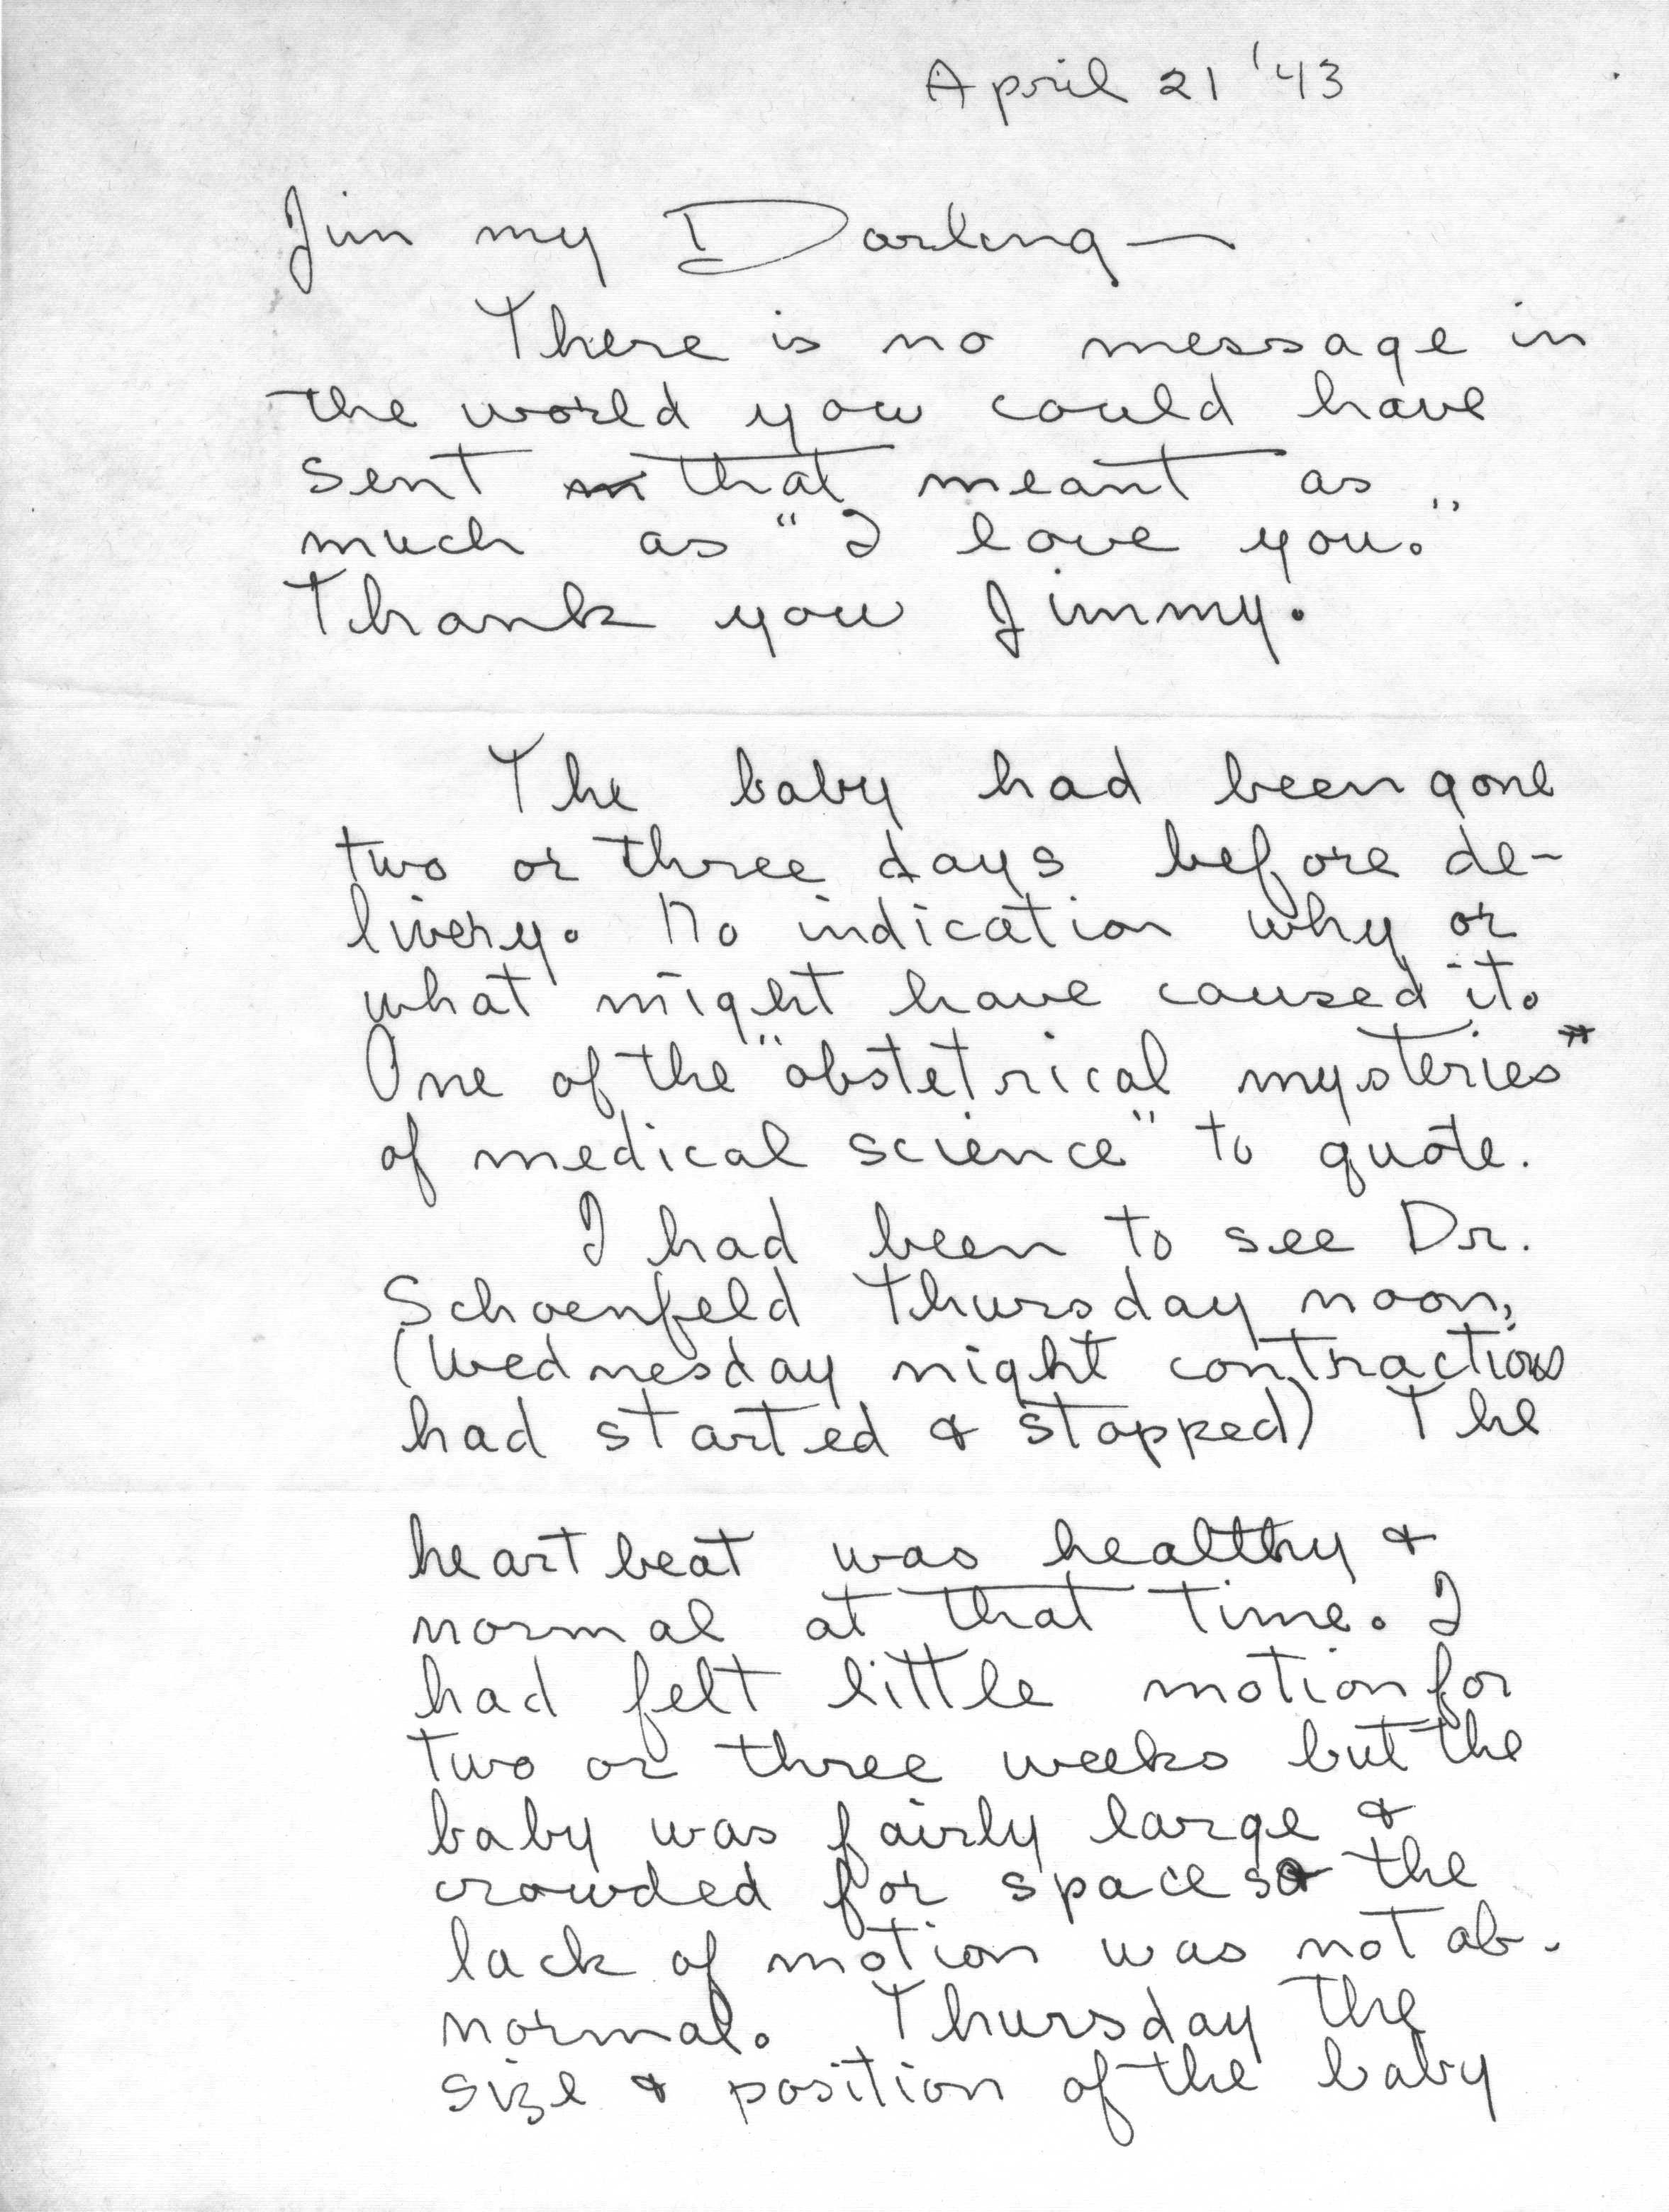 April 21 '43
Jim my Darling—
There is no message in
the world you could have
sent m that meant as
much as "I love you."
Thank you Jimmy.
The baby had been gone
two or three days before de-
livery. No indication why or
what might have caused it.
One of the "obstetrical mysteries"
of medical science" to quote.
I had been to see Dr.
Schoenfeld Thursday noon,
(Wednesday night contractions
had started & stopped) The
heart beat was healthy &
normal at that time. I
had felt little motion for
two or three weeks but the
baby was fairly large &
crowded for space so the
lack of motion was not ab-
normal. Thursday the
size & position of the baby